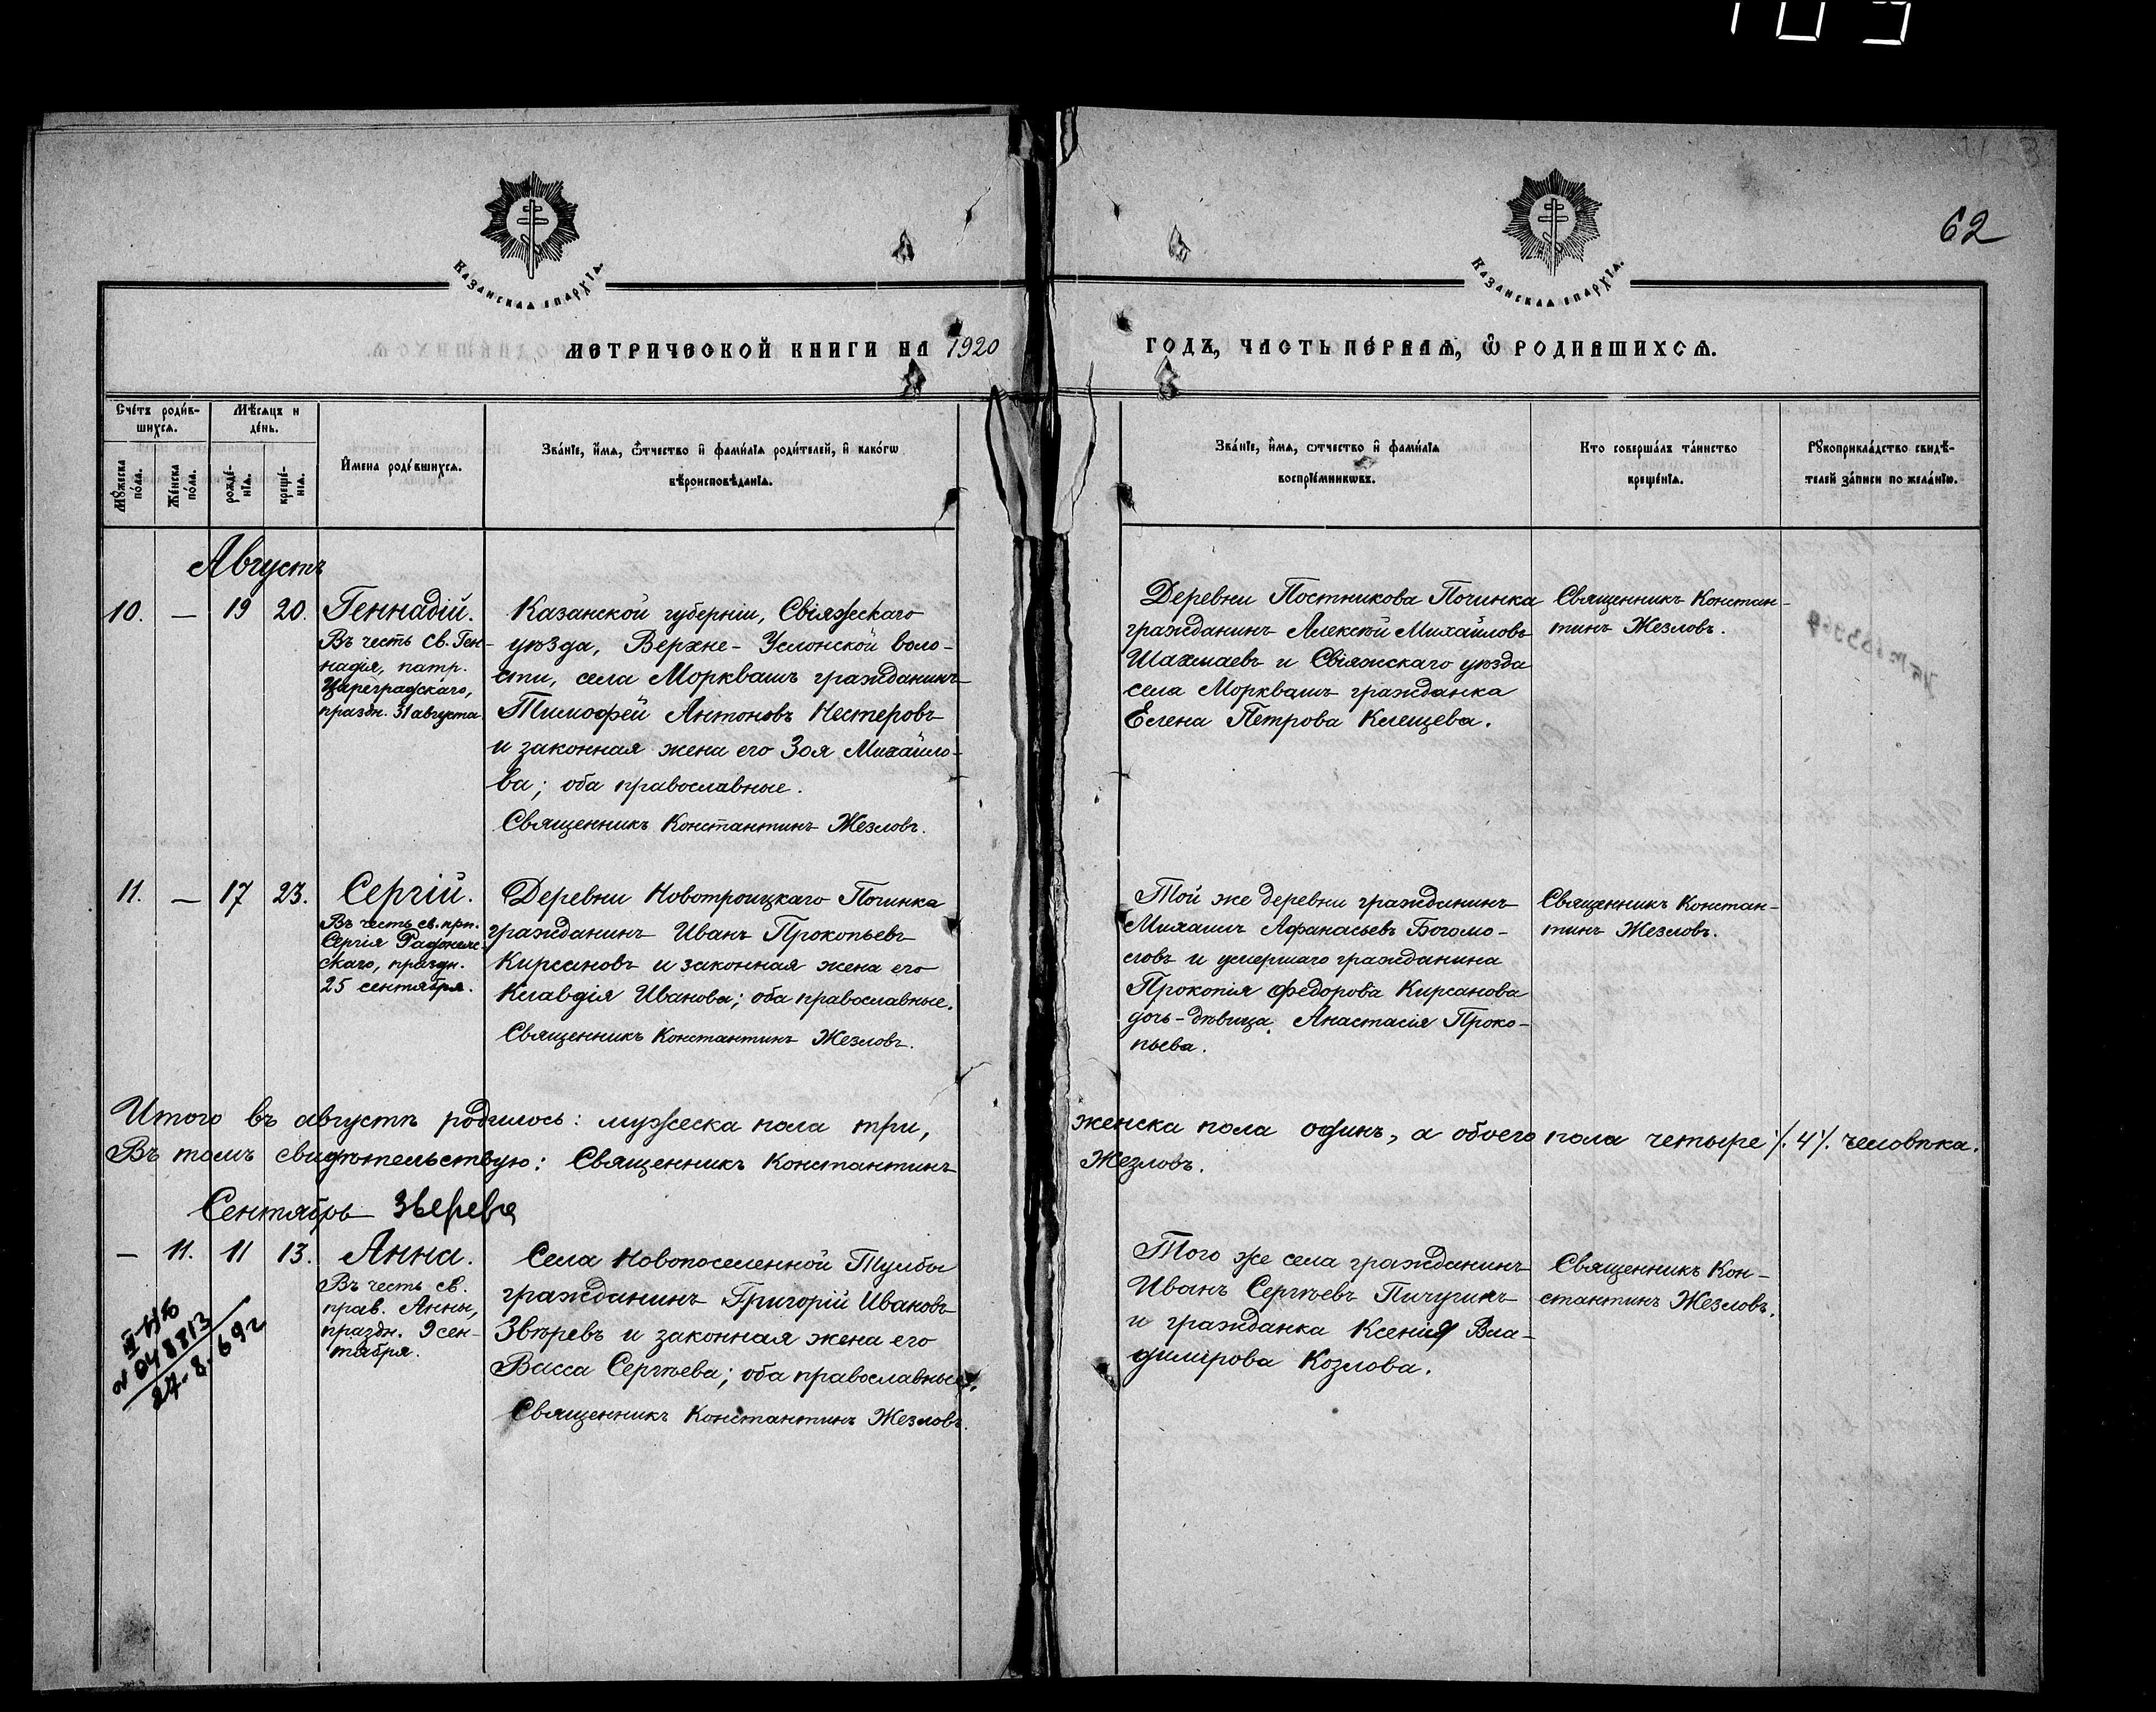 62
Казанская епархїѧ.
Казанская епархїѧ.
МЕТРИЧЕСКОЙ КНИГИ НА 1920
ГОДЪ, ЧАСТЬ ПЕРВАЯ, Ѿ РОДИВШИХСѦ.
Сче́тъ роди́в-
шихсѧ.
Мѣ́сѧцъ и
де́нь.
Мꙋ́жеска
по́ла.
Же́нска
по́ла.
рожде́-
нїѧ.
креще́-
нїѧ.
И҆мена роди́вшихсѧ.
Зва́нїе, и҆́мѧ, ѻ҆́тчество и҆ фами́лїѧ роди́телей, и҆ како́гѡ
вѣроисповѣ́данїѧ.
Зва́нїе, и҆́мѧ, ѻтчество и҆ фами́лїѧ
воспрїе́мникѡвъ.
Кто соверша́лъ та́инство
креще́нїѧ.
Рꙋкоприкла́дство свидѣ́-
телей за́писи по жела́нїю.
Августъ
10. — 19 20. Геннадій.
Въ честь св. Ген-
надія, патр.
Цареградскаго,
праздн. 31 августа
Казанской губерніи, Свіяжскаго
уѣзда, Верхне-Услонской воло-
сти, села Моркваш гражданинъ
Тимофей Антоновъ Нестеровъ
и законная жена его Зоя Михайло-
ва; оба православные.
Священникъ Константинъ Жезловъ.
Деревни Постникова Починка
гражданинъ Алексѣй Михайловъ
Шахмаевъ и Свіяжскаго уѣзда
села Моркваш гражданка
Елена Петрова Клещева.
Священникъ Констан-
тинъ Жезловъ.
11. — 17 23. Сергій.
Въ честь св. прп.
Сергія Радонеж-
скаго, праздн.
25 сентября.
Деревни Новотроицкаго Починка
гражданинъ Иванъ Прокопьевъ
Кирсановъ и законная жена его
Клавдія Иванова; оба православные.
Священникъ Константинъ Жезловъ.
Той же деревни гражданинъ
Михаилъ Афанасьевъ Богомо-
ловъ и умершаго гражданина
Прокопія Федорова Кирсанова
дочь-дѣвица Анастасія Проко-
пьева.
Священникъ Констан-
тинъ Жезловъ.
Итого въ августѣ родилось: мужеска пола три, женска пола одинъ, а обоего пола четыре /. 4 /. человѣка.
Въ томъ свидѣтельствую: Священникъ Константинъ Жезловъ.
Сентябрь Зверева
— 11. 11 13. Анна.
Въ честь св.
прав. Анны,
праздн. 9 сен-
тября.
Села Новопоселенной Тулбы
гражданинъ Григорій Ивановъ
Звѣревъ и законная жена его
Васса Сергѣева; оба православные.
Священникъ Константинъ Жезловъ.
Того же села гражданинъ
Иванъ Сергѣевъ Пичугинъ
и гражданка Ксения Вла-
димірова Козлова.
Священникъ Кон-
стантинъ Жезловъ.
№ 048813
27-8-69 г